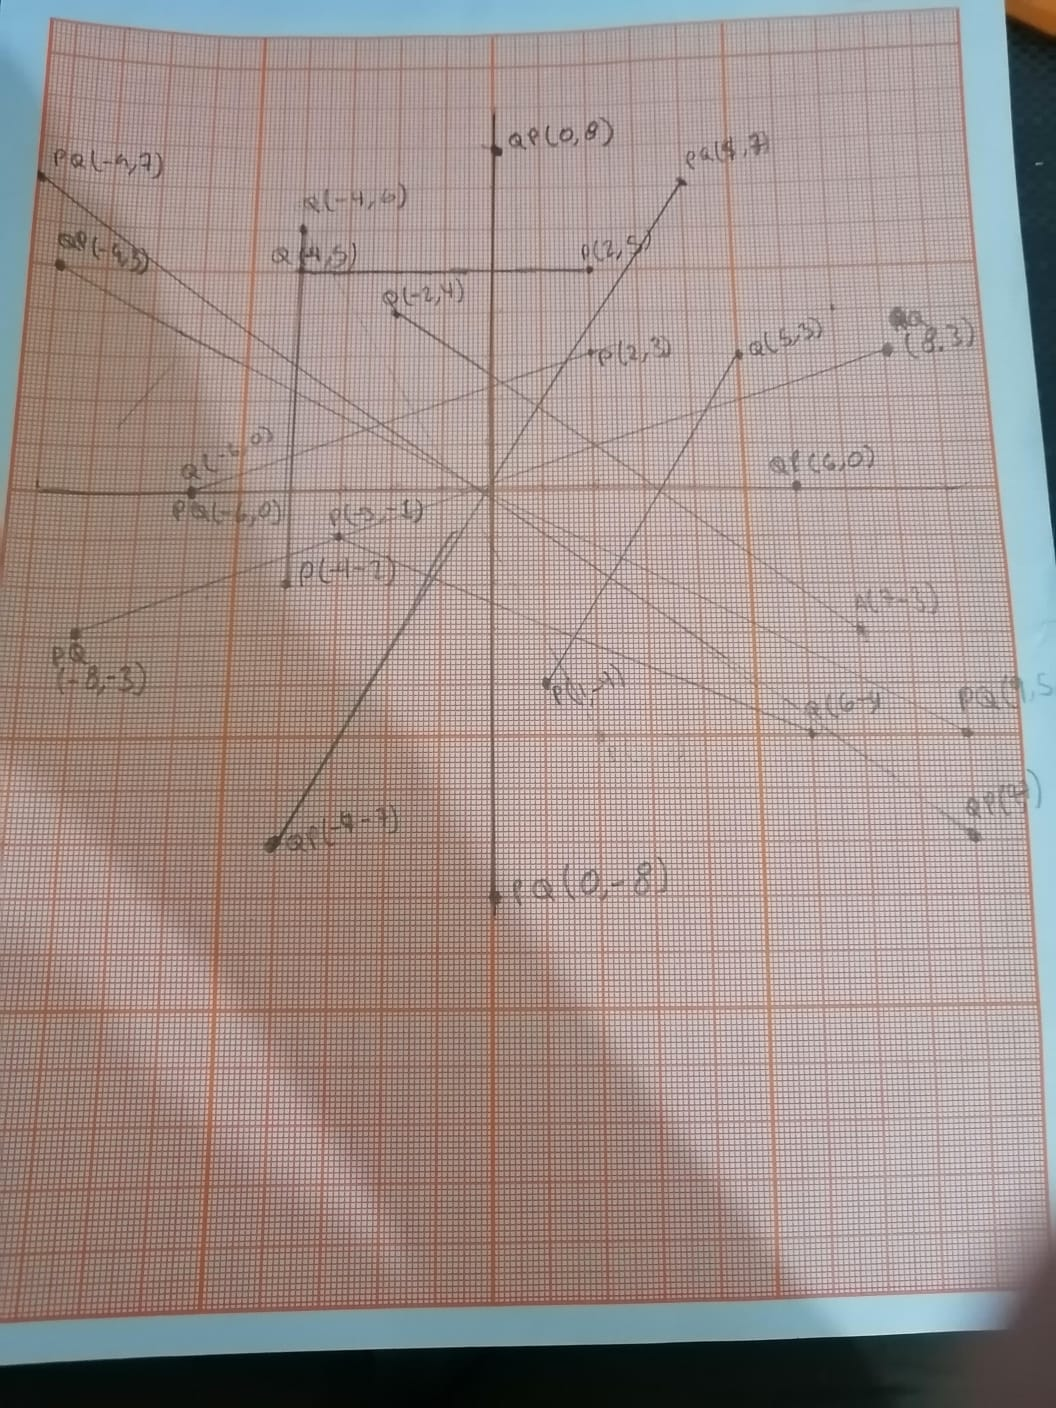 QP(0,8)
PQ(4,7)
PQ(-9,7)
Q(-4,6)
QP(-9,5)
Q(-4,5)
P(2,5)
P(-2,4)
P(2,3)
Q(5,3)
(8,3)
Q(-6,0)
QP(6,0)
PQ(-6,0)
P(-3,-1)
P(-4-2)
A(7-3)
PQ
(-8,-3)
P(1,-4)
Q(6-4
PQ(9,5
QP(-4-7)
PQ(0,-8)